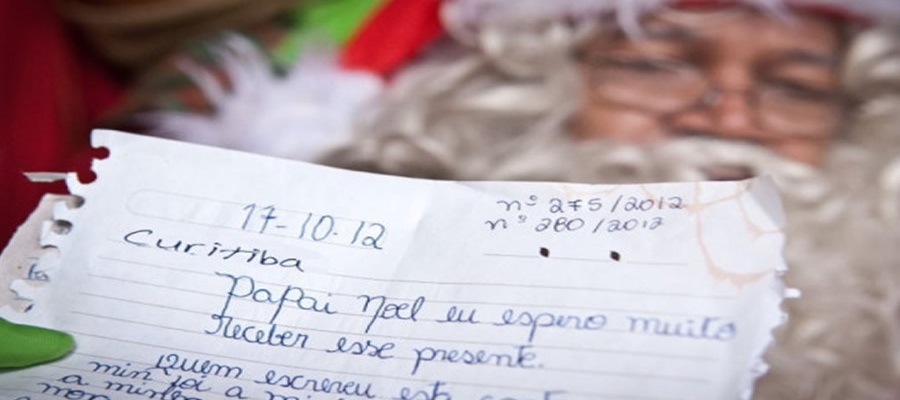 nº 275/2012
17-10.12
nº 280/2012
Curitiba
Papai Noel eu espero muito
Receber esse presente.
Quem escreveu esta
min foi a
a